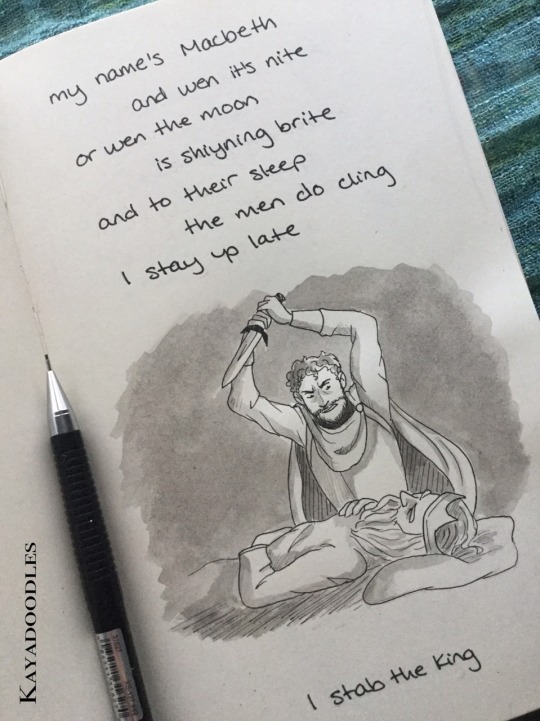 my name's Macbeth
and wen it's nite
or wen the moon
is shiyning brite
and to their sleep
the men do cling
I stay up late
I stab the King
KAYADOODLES